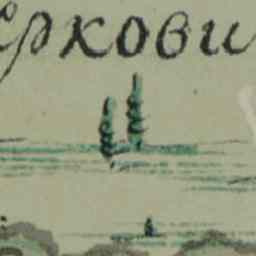 еркови